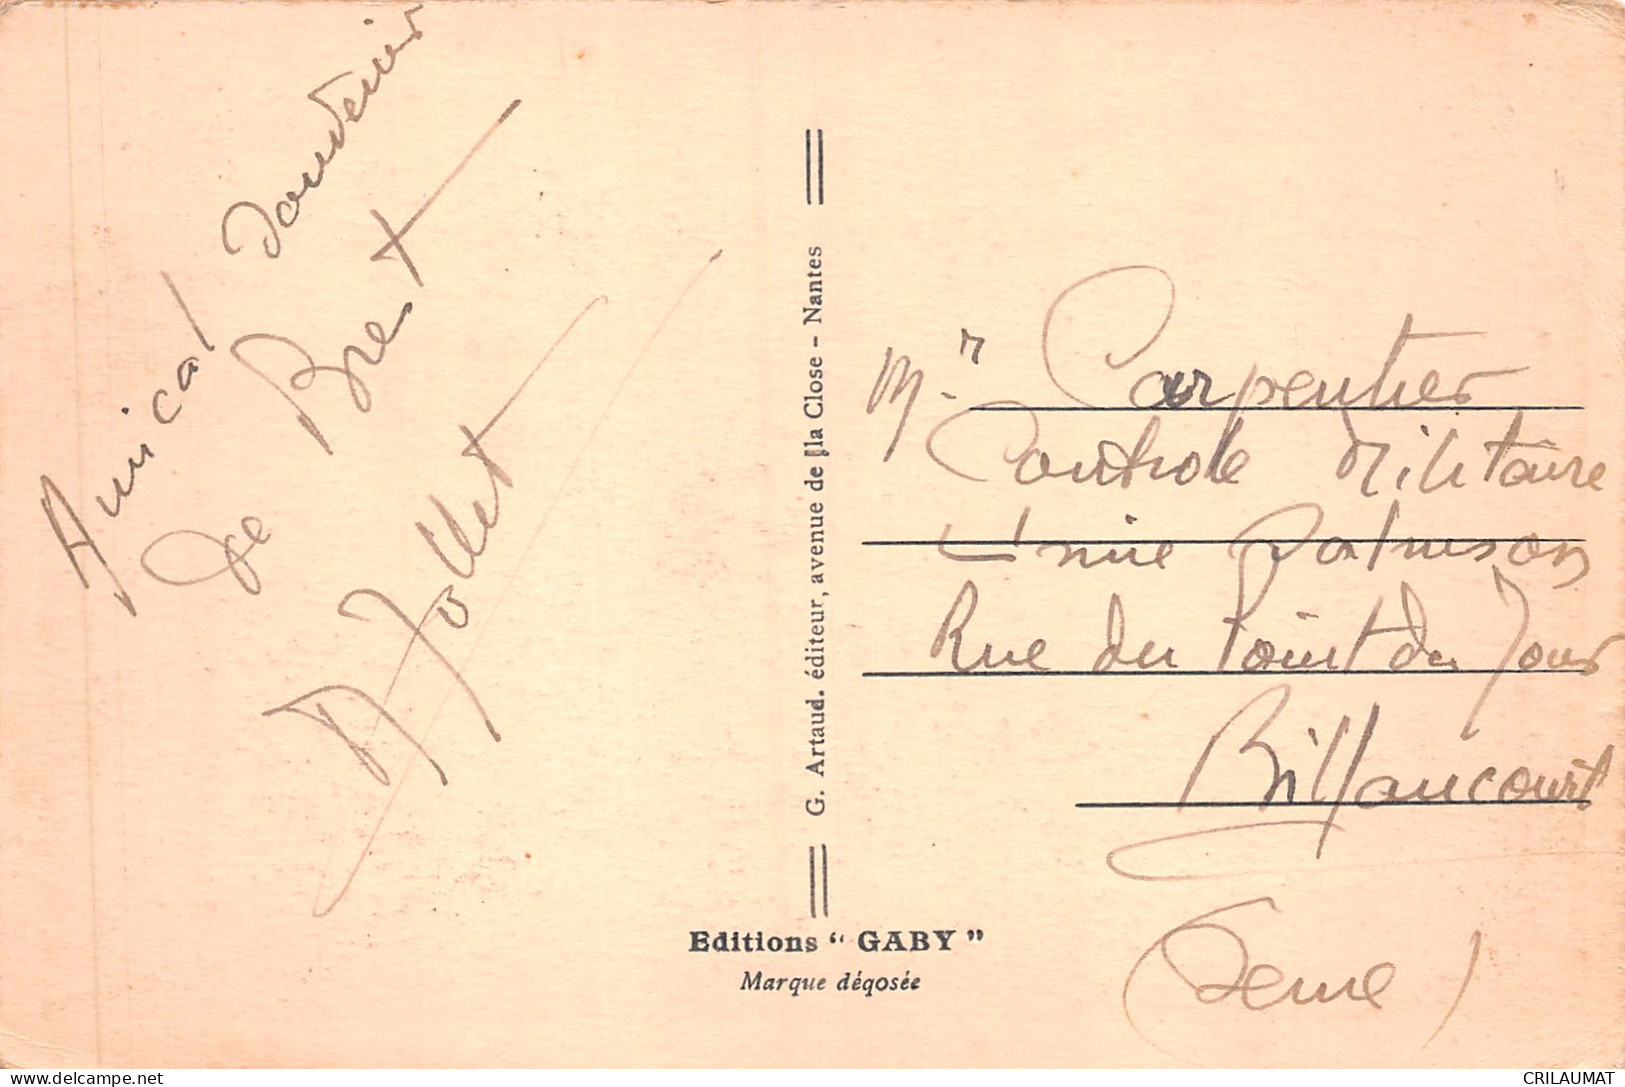 Amical souvenir
de Brest
Mr Carpentier
Contrôle Militaire
Usine
Rue du Point du Jour
Billancourt
(Seine)
G. Artaud. éditeur, avenue de la Close - Nantes
Editions “ GABY ”
Marque déqosée
CRILAUMAT